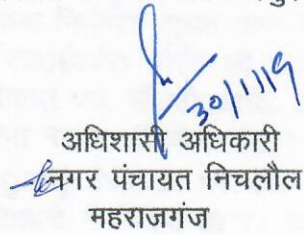 30/1/19
अधिशासी अधिकारी
नगर पंचायत निचलौल
महराजगंज